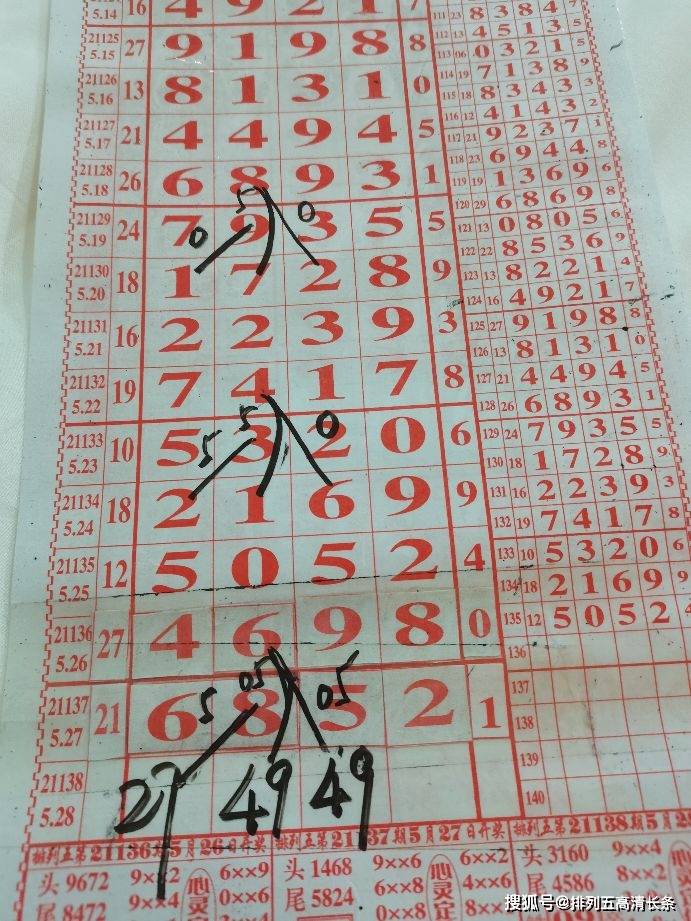 5.14 16 4 9 2 1 7
21125 5.15 27 9 1 9 8 8
21126 5.16 13 8 1 3 1 0
21127 5.17 21 4 4 9 4 5
21128 5.18 26 6 8 9 3 1
5 0
21129 5.19 24 7 9 3 5 5
0
21130 5.20 18 1 7 2 8 9
21131 5.21 16 2 2 3 9 3
21132 5.22 19 7 4 1 7 8
5 0
21133 5.23 10 5 3 2 0 6
5
21134 5.24 18 2 1 6 9 9
21135 5.25 12 5 0 5 2 4
21136 5.26 27 4 6 9 8 0
05 05
21137 5.27 21 6 8 5 2 1
5
21138 5.28 27 49 49
111 23 8 3 8 4 7
112 13 4 5 1 3 5
113 06 0 3 2 1 5
114 19 7 1 3 8 9
115 18 8 3 4 3 3
116 12 4 1 4 3 2
117 21 9 2 3 7 1
118 23 6 9 4 4 8
119 19 1 3 6 9 6
120 29 6 8 6 9 8
121 13 0 8 0 5 6
122 22 8 5 3 6 9
123 13 8 2 2 1 4
124 16 4 9 2 1 7
125 27 9 1 9 8 8
126 13 8 1 3 1 0
127 21 4 4 9 4 5
128 26 6 8 9 3 1
129 24 7 9 3 5 5
130 18 1 7 2 8 9
131 16 2 2 3 9 3
132 19 7 4 1 7 8
133 10 5 3 2 0 6
134 18 2 1 6 9 9
135 12 5 0 5 2 4
136
137
138
139
140
排列五第21136期5月26日开奖
头 9672 6××9
尾 8472 9××4 0××6
心灵
排列五第21137期5月27日开奖
头 1468 9××6 6××2
尾 5824 6××8 4××6
心灵
排列五第21138期5月28
头 3160 9××4
尾 4586 8××2
搜狐号@排列五高清长条